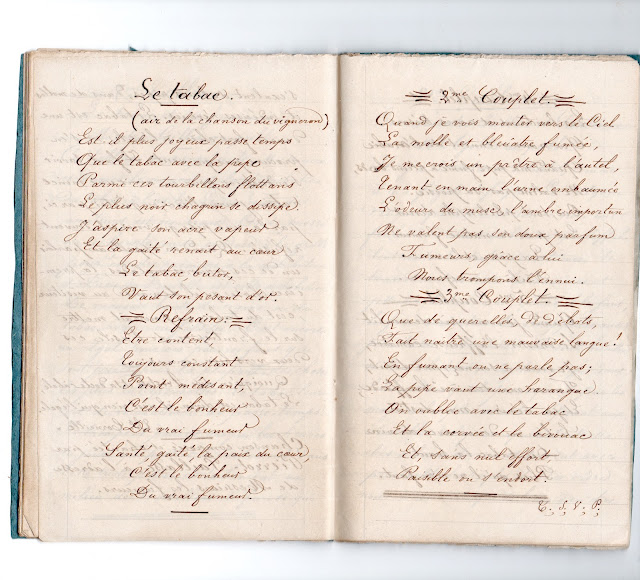 Le tabac.
(air de la chanson du vigneron)
Est-il plus joyeux passe temps
Que le tabac avec la pipe,
Parmi ces tourbillons flottans
Le plus noir chagrin se dissipe.
J'aspire son acre vapeur
Et la gaité renait au cœur
Le tabac
Vaut son pesant d'or.
Refrain.
Etre content,
Toujours constant
Point médisant,
C'est le bonheur
Du vrai fumeur
Santé, gaité, la paix du cœur,
C'est le bonheur
Du vrai fumeur.
2me Couplet.
Quand je vois monter vers le Ciel
La molle et bleuâtre fumée,
Je me crois un prêtre à l'autel,
Tenant en main l'urne embaumée
L'odeur du musc, l'ambre importun
Ne valent pas son doux parfum
Fumeurs, grâce à lui
Nous trompons l'ennui.
3me Couplet.
Que de querelles, de débats,
Fait naître une mauvaise langue!
En fumant on ne parle pas;
La pipe vaut une harangue.
On oublie avec le tabac
Et la corvée et le bivouac
Et, sans nul effort
Paisible on s'endort.
T. S. V. P.